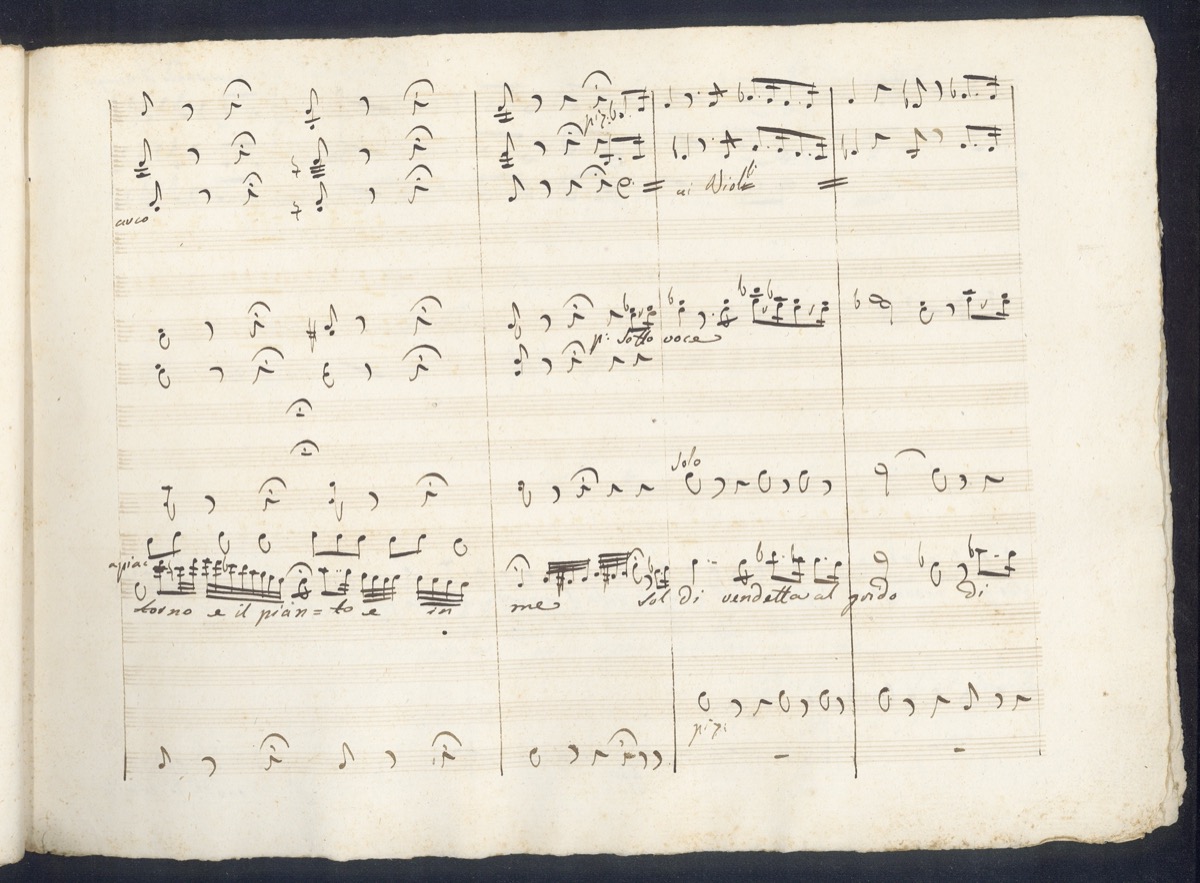 pp.
ai Viol.ni
arco
p: sotto voce
Solo
a piac
torno e il pian = to e in me Sol di vendetta al grido Di
pp